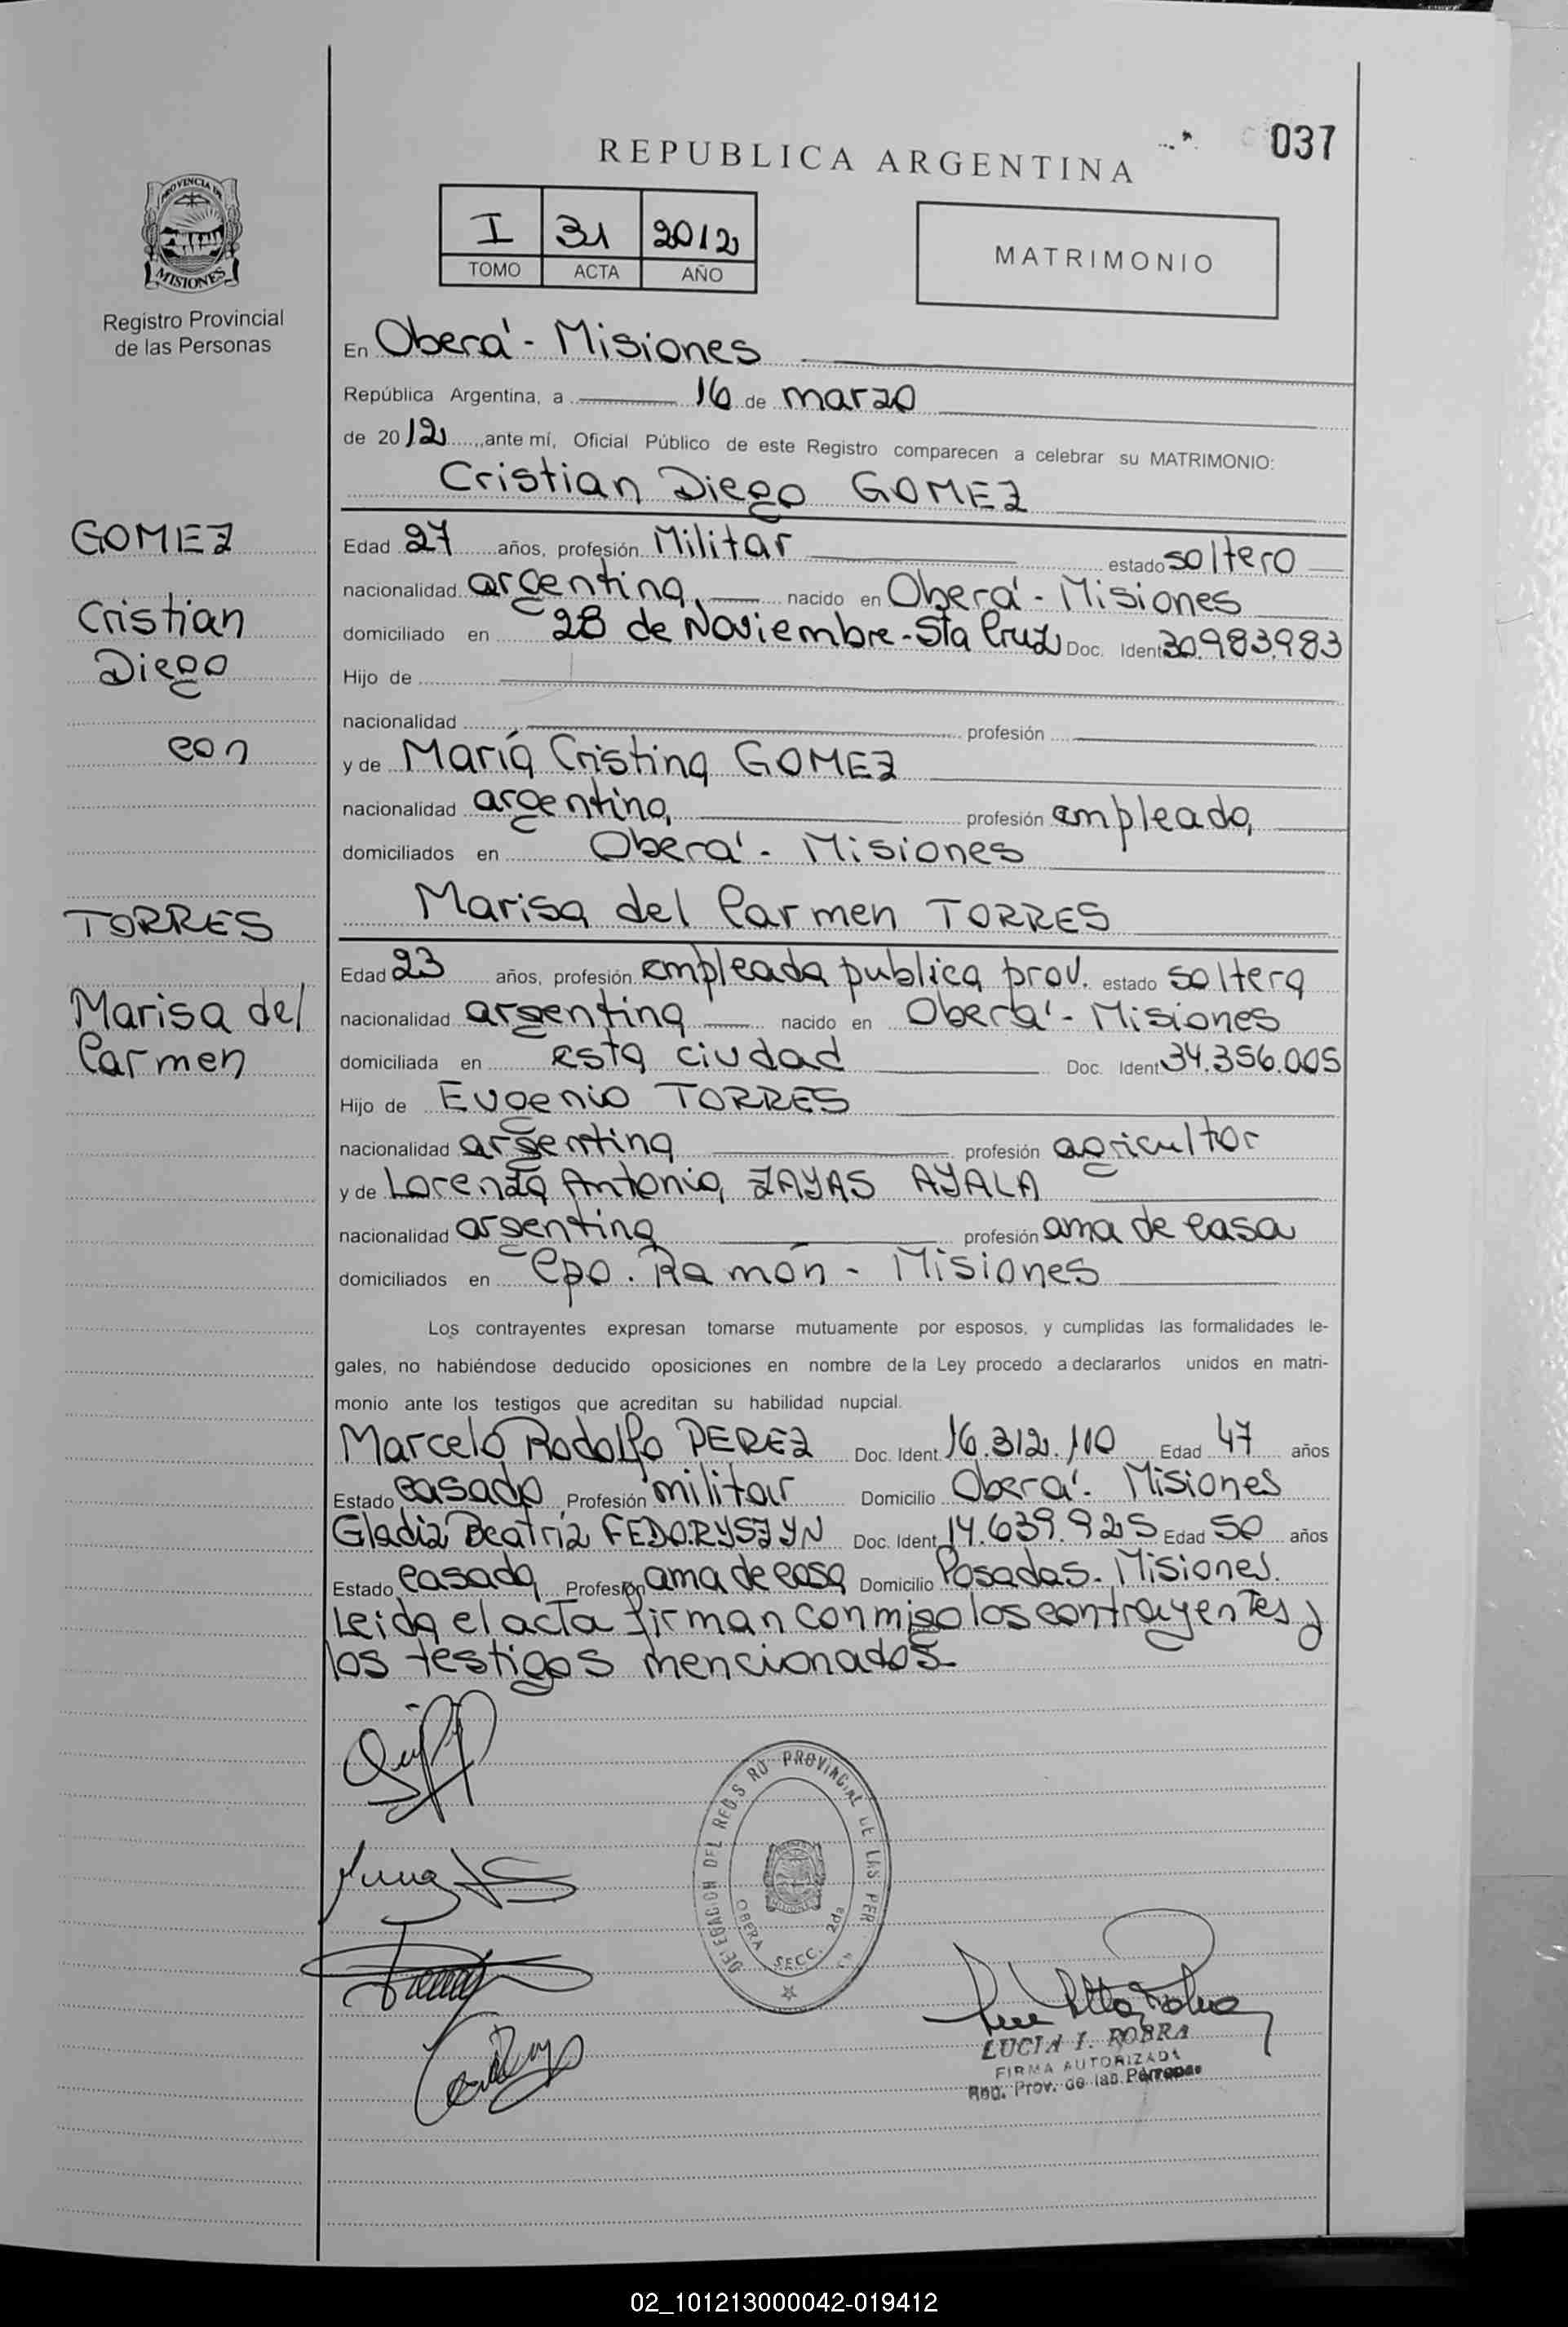 037
REPUBLICA ARGENTINA
PROVINCIA DE
MISIONES
Registro Provincial
de las Personas
I 31 2012
TOMO ACTA AÑO
MATRIMONIO
En Oberá - Misiones
República Argentina, a 16 de marzo
de 2012, ante mí, Oficial Público de este Registro comparecen a celebrar su MATRIMONIO:
Cristian Diego GOMEZ
GOMEZ
Cristian
Diego
con
TORRES
Marisa del
Carmen
Edad 27 años, profesión Militar estado soltero
nacionalidad argentina nacido en Oberá - Misiones
domiciliado en 28 de Noviembre - Sta Cruz Doc. Ident 30.983.983
Hijo de
nacionalidad profesión
y de María Cristina GOMEZ
nacionalidad argentina profesión empleada
domiciliados en Oberá - Misiones
Marisa del Carmen TORRES
Edad 23 años, profesión empleada publica prov. estado soltera
nacionalidad argentina nacido en Oberá - Misiones
domiciliada en esta ciudad Doc. Ident 34.356.005
Hijo de Eugenio TORRES
nacionalidad argentina profesión agricultor
y de Lorenza Antonia ZAYAS AYALA
nacionalidad argentina profesión ama de casa
domiciliados en Cpo. Ramón - Misiones
Los contrayentes expresan tomarse mutuamente por esposos, y cumplidas las formalidades le-
gales, no habiéndose deducido oposiciones en nombre de la Ley procedo a declararlos unidos en matri-
monio ante los testigos que acreditan su habilidad nupcial.
Marcelo Rodolfo PEREZ Doc. Ident. 16.312.110 Edad 47 años
Estado casado Profesión militar Domicilio Oberá - Misiones
Gladiz Beatríz FEDORYSZYN Doc. Ident. 14.639.925 Edad 50 años
Estado casada Profesión ama de casa Domicilio Posadas - Misiones.
Leida el acta firman conmigo los contrayentes y
los testigos mencionados.-
DELEGACION DEL REGISTRO PROVINCIAL DE LAS PER
OBERA SECC. 2da
LUCIA I. ROBRA
FIRMA AUTORIZADA
Reg. Prov. de las Personas
02_101213000042-019412